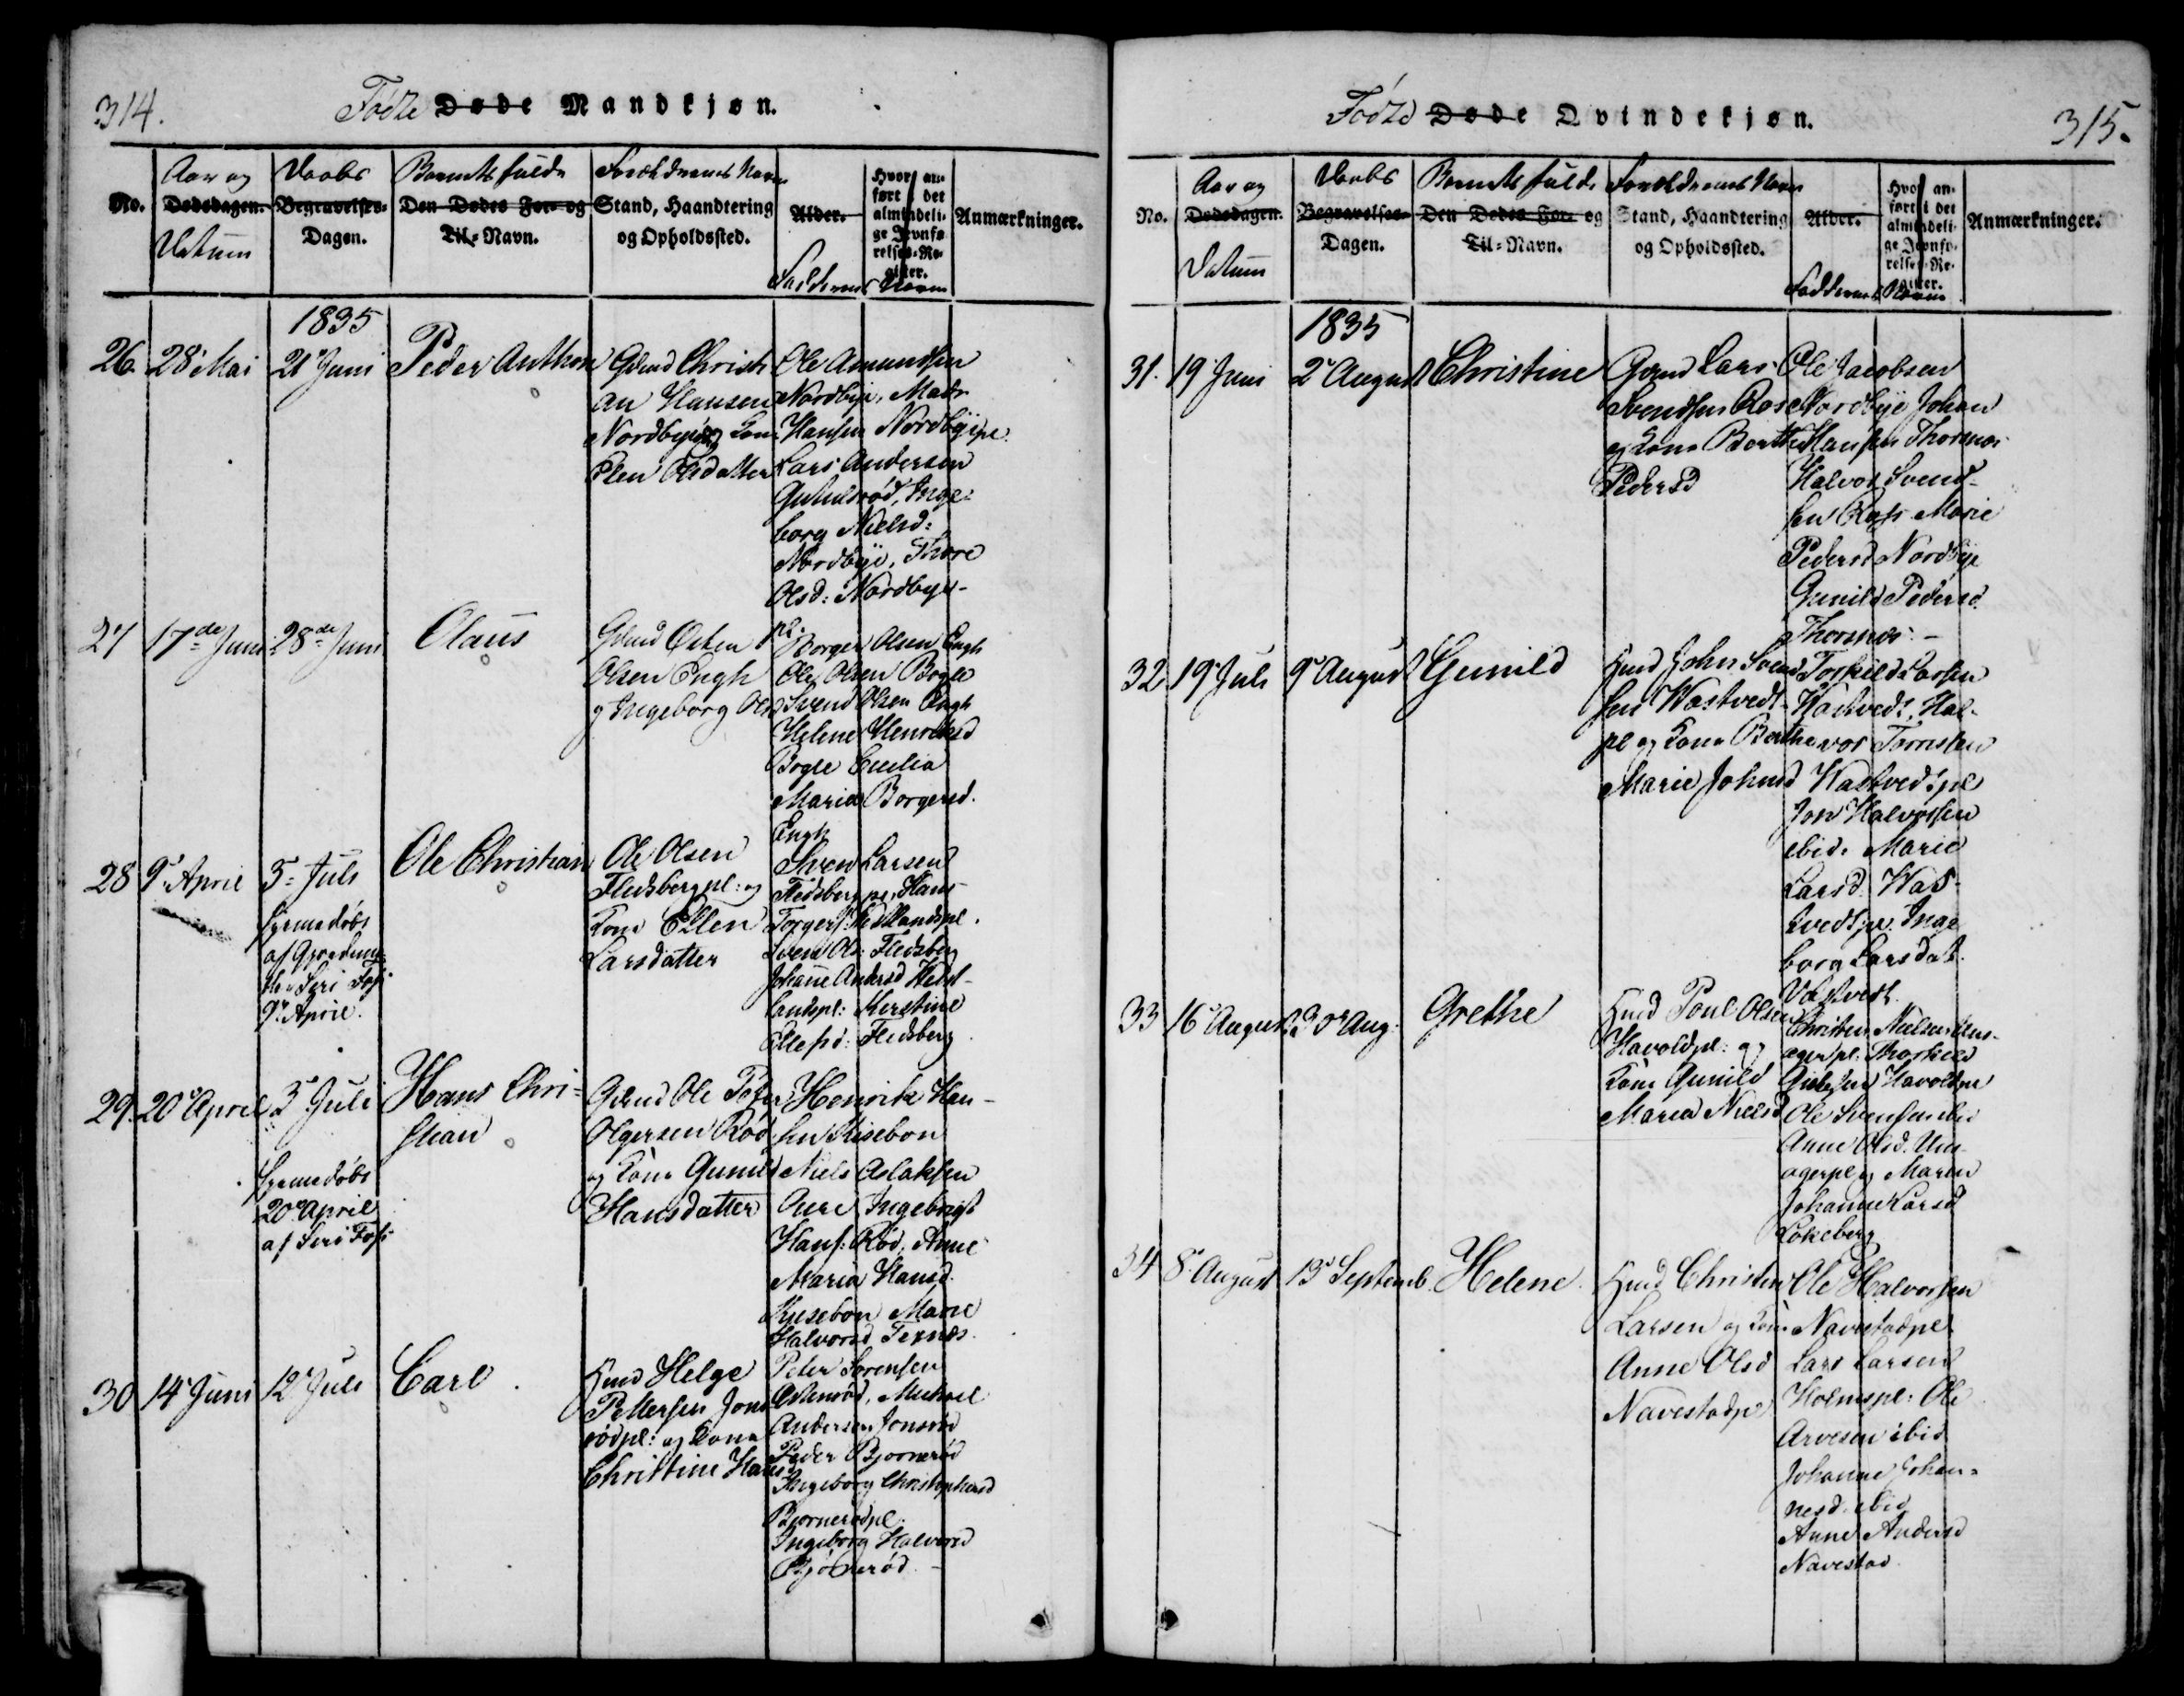 314.
Fødte Døde Mandkjøn.
No.
Aar og
Dødsdagen.
Datum
Daabs
Begravelses-
Dagen.
Barnets fulde
Den Dødes For- og
Til-Navn.
Forældrenes Navn
Stand, Haandtering
og Opholdssted.
Alder.
Faddernes Navne
Hvor an-
ført i det
almindeli-
ge Jevnfø-
relses-Re-
gister.
Anmærkninger.
1835
26.
28 Mai
21 Juni
Peder Anthon
Gdmd Christi
an Hansen
Nordbye og Kone
Elen Olsdatter
Ole Amundsen
Nordbye, Mads
Hansen Nordbyepl.
Lars Andersen
Inge-
borg Nielsd:
Nordbye, Thore
Olsd: Nordbye-
pl.
27
17de Juni
28de Juni
Olaus
Gdmd Østen
Olsen Engh
og Ingeborg Olsd
Borger Olsen Engh
Ole Olsen Bogle
Svend Olsen Engh
Helene Henriksd
Bogle Cecilia
Maria Borgersd.
Engh
28
9 April
5 Juli
hjemedøbt
af
Fos
9 April.
Ole Christian
Ole Olsen
Fledsbergpl: og
Kone Ellen
Larsdatter
Sven Larsen
Fledsberg pl. Hans
Svend Ols: Fledsberg
Johane Andersd
landspl: Kirstine
Ellefsd: Fledsberg
29.
20 April
5 Juli
hjemedøbt
20 April
af Siri Fos
Hans Chri-
stian
Gdmd Ole
Olgersen Rød
og Kone Gunild
Hansdatter
Henrik Han-
sen Kisebon
Niels Aslaksen
Ingebrigt
Hans: Rød, Anne
Maria Hansd.
Kisebon Marie
Halvorsd Texnes.
30
14 Juni
12 Juli
Carl
Hmd Helge
Pettersen Jons
rødpl: og Kone
Christine Hansd
Peter Sørensen
Michael
Andersen Jonsrød
Peder Bjørnerød
Ingeborg Christophersd
Bjørnerødpl.
Ingeborg Halvorsd
Bjørnerød.
Fødte Døde Qvindekjøn.
315.
No.
Aar og
Dødsdagen.
Datum
Daabs
Begravelses-
Dagen.
Barnets fulde
Den Dødes For- og
Til-Navn.
Forældrenes Navn
Stand, Haandtering
og Opholdssted.
Alder.
Faddernes Navne
Hvor an-
ført i det
almindeli-
ge Jevnfø-
relses-Re-
gister.
Anmærkninger.
1835
31.
19 Juni
2 August
Christine
Gdmd Lars
Svendsen Aas
og Kone Berthe
Pedersd
Ole Jacobsen
Nordbye Johan
Hansen Thorsnes
Halvor Svend-
sen Marie
Pedersd Nordbye
Gunild Pedersd.
Thorsnes. -
32
19 Juli
9 August
Gunild
Hmd John Svend
sen Wastvedt-
pl og Kone Berthe
Marie Johnsd
Torkild Larsen
Wastvedt, Hal-
vor Tørresten
Wastvedtpl
Jon Halvorsen
ibid. Marie
Larsd. Wast-
vedtpl. Inge
borg Larsdat.
Vastvedt.
33
16 August
30 Aug:
Grethe
Hmd Poul Olsen
Havoldpl: og
Kone Gunild
Maria Nielsd
Christen Nielsen Ums-
ager pl. Thorkild
Havoldpl
Ole Svensen ibid
Anne Olsd. Ums-
agerpl og Maren
Johanne Larsd
Lokeberg
34
8 August
13 Septemb.
Helene.
Hmd Christen
Larsen og Kone
Anne Olsd
Navestadpl
Ole Halvorsen
Navestadpl
Lars Larsen
Holmspl: Ole
Arvesen ibid
Johanne Johan-
nesd. ibid
Anne Andersd
Navestad.